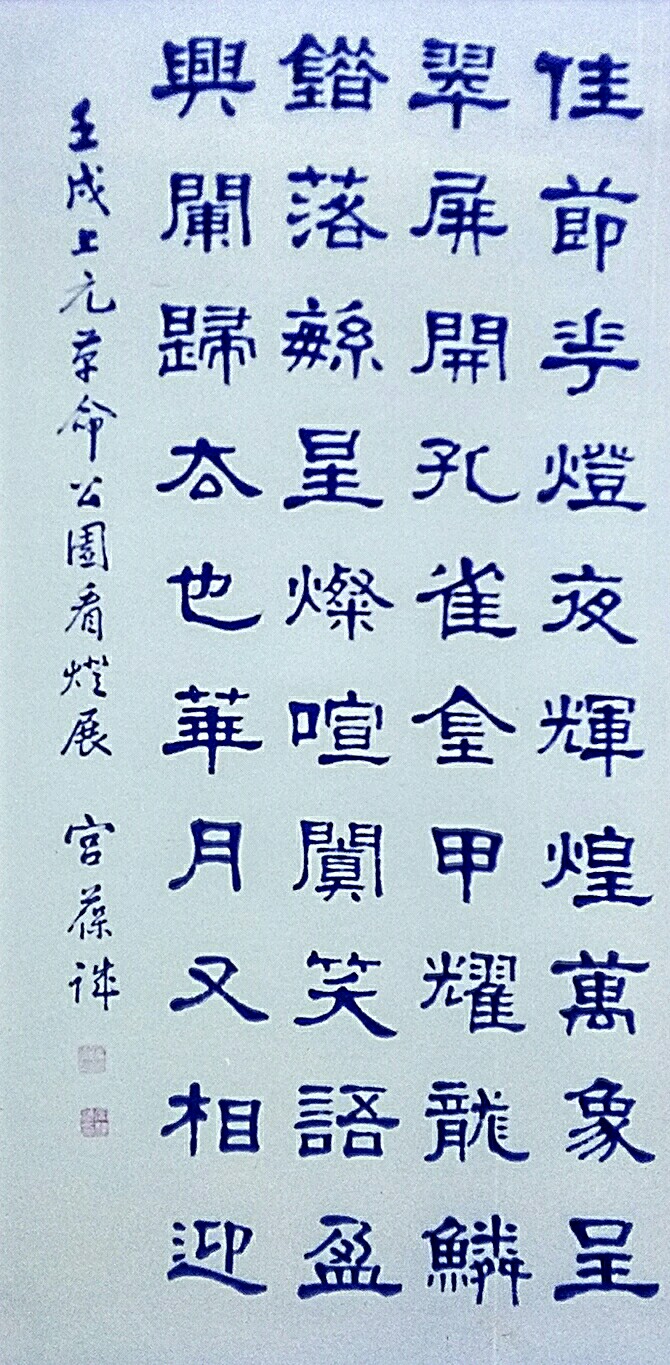 佳節華燈夜輝煌萬象呈
翠屏開孔雀金甲耀龍鱗
錯落緐星燦喧闐笑語盈
興闌歸去也華月又相迎
壬戌上元革命公園看燈展 宮葆诚